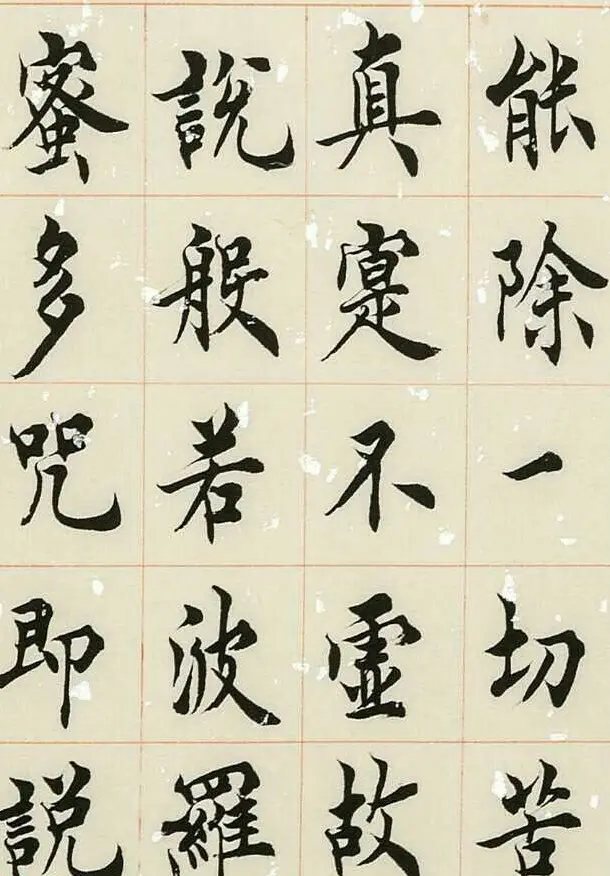 能除一切苦
真寔不虛故
說般若波羅
蜜多咒即説